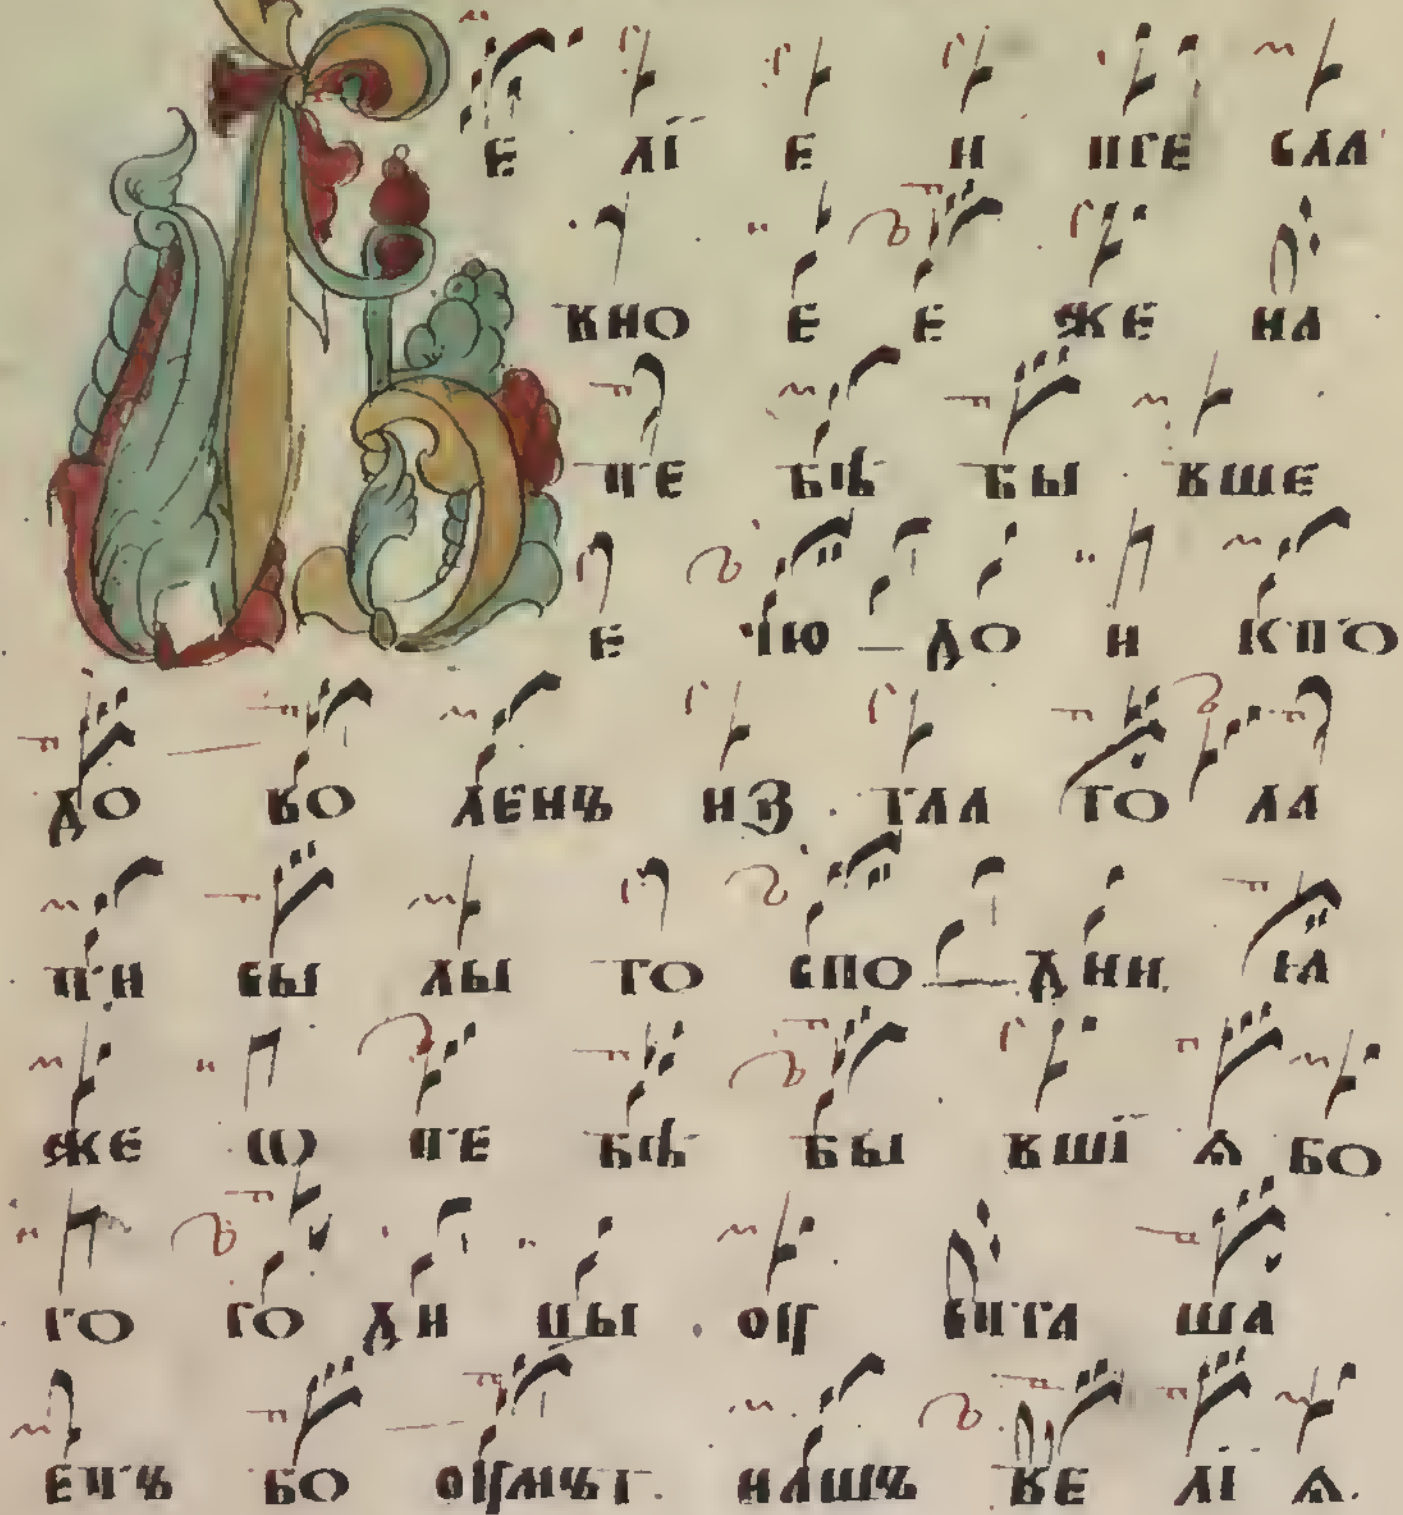 Е ЛЇ Е И ПРЕ СЛА
ВНО Е Е ЖЕ НА
ТЕ БѢ БЫ ВШЕ
Е ЧЮ ДО И КТО
ДО ВО ЛЕНЪ ИЗ ГЛА ГО ЛА
ТИ СЫ ЛЫ ГО СПО ДНИ Ꙗ
ЖЕ Ѡ ТЕ БѢ БЫ ВШЇ Ѧ БО
ГО РО ДИ ЦЫ ОУ СТРА ША
ЕТЪ БО ОУМЪ НАШЪ ВЕ ЛЇ Ѧ